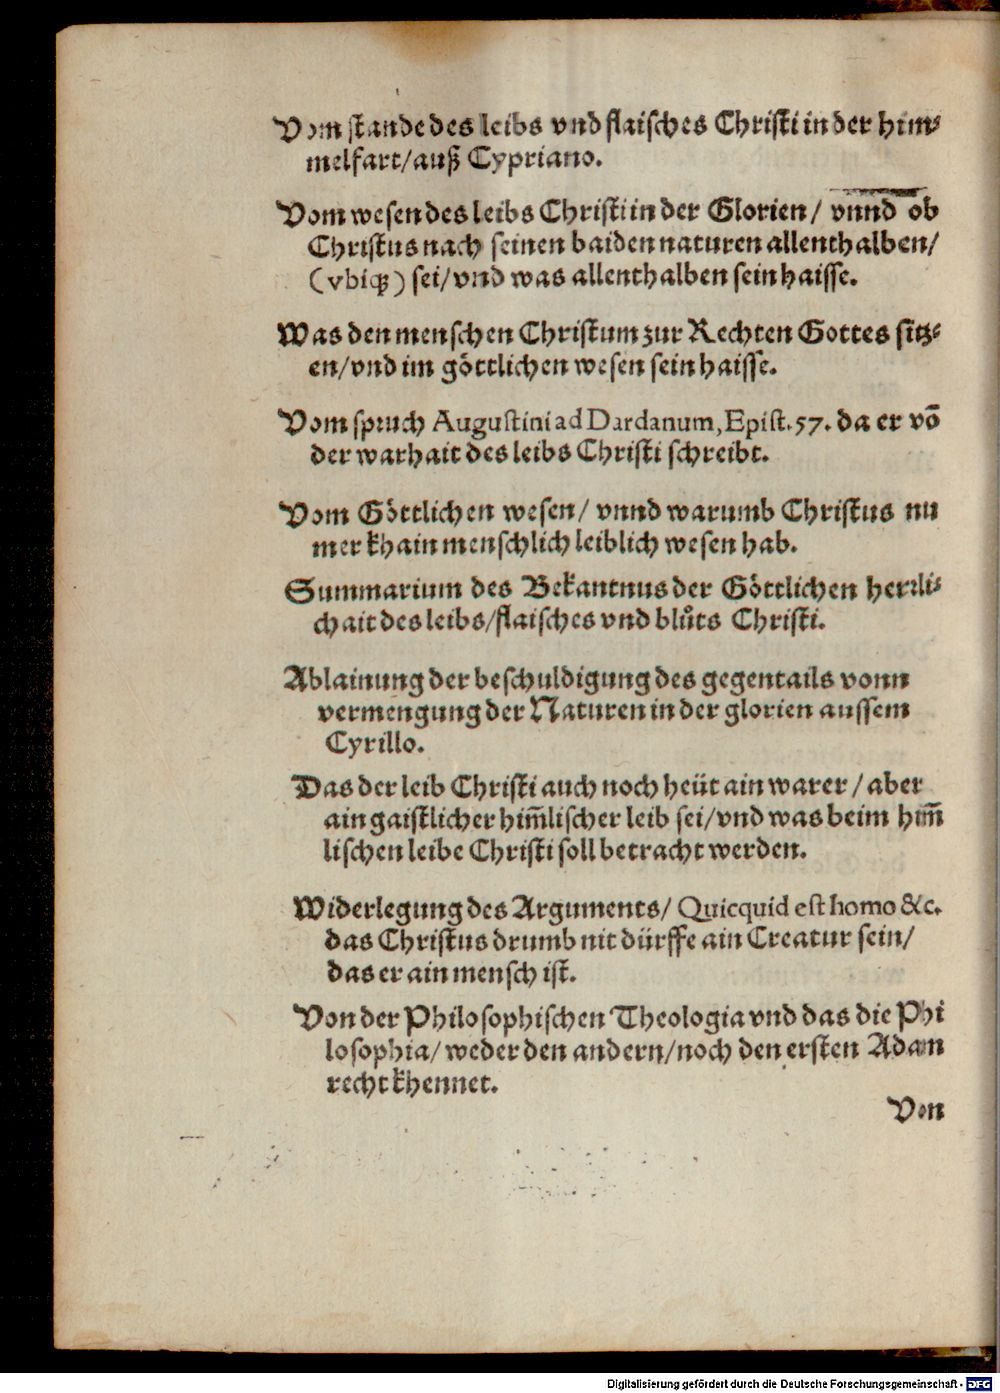 Vom stande des leibs vnd flaisches Christi in der him⸗
melfart/auß Cypriano.
Vom wesen des leibs Christi in der Glorien/ vnnd ob
Christus nach seinen baiden naturen allenthalben/
(vbiqꝫ) sei/vnd was allenthalben sein haisse.
Was den menschen Christum zur Rechten Gottes sitz⸗
en/vnd im göttlichen wesen sein haisse.
Vom spruch Augustini ad Dardanum, Epist. 57. da er võ
der warhait des leibs Christi schreibt.
Vom Göttlichen wesen/ vnnd warumb Christus nu
mer khain menschlich leiblich wesen hab.
Summarium des Bekantnus der Göttlichen herrli⸗
chait des leibs/flaisches vnd blůts Christi.
Ablainung der beschuldigung des gegentails vonn
vermengung der Naturen in der glorien aussem
Cyrillo.
Das der leib Christi auch noch heüt ain warer/ aber
ain gaistlicher him̃lischer leib sei/vnd was beim him̃
lischen leibe Christi soll betracht werden.
Widerlegung des Arguments/ Quicquid est homo &c.
das Christus drumb nit dürffe ain Creatur sein/
das er ain mensch ist.
Von der Philosophischen Theologia vnd das die Phi
losophia/ weder den andern/noch den ersten Adam
recht khennet.
Von
Digitalisierung gefördert durch die Deutsche Forschungsgemeinschaft - DFG